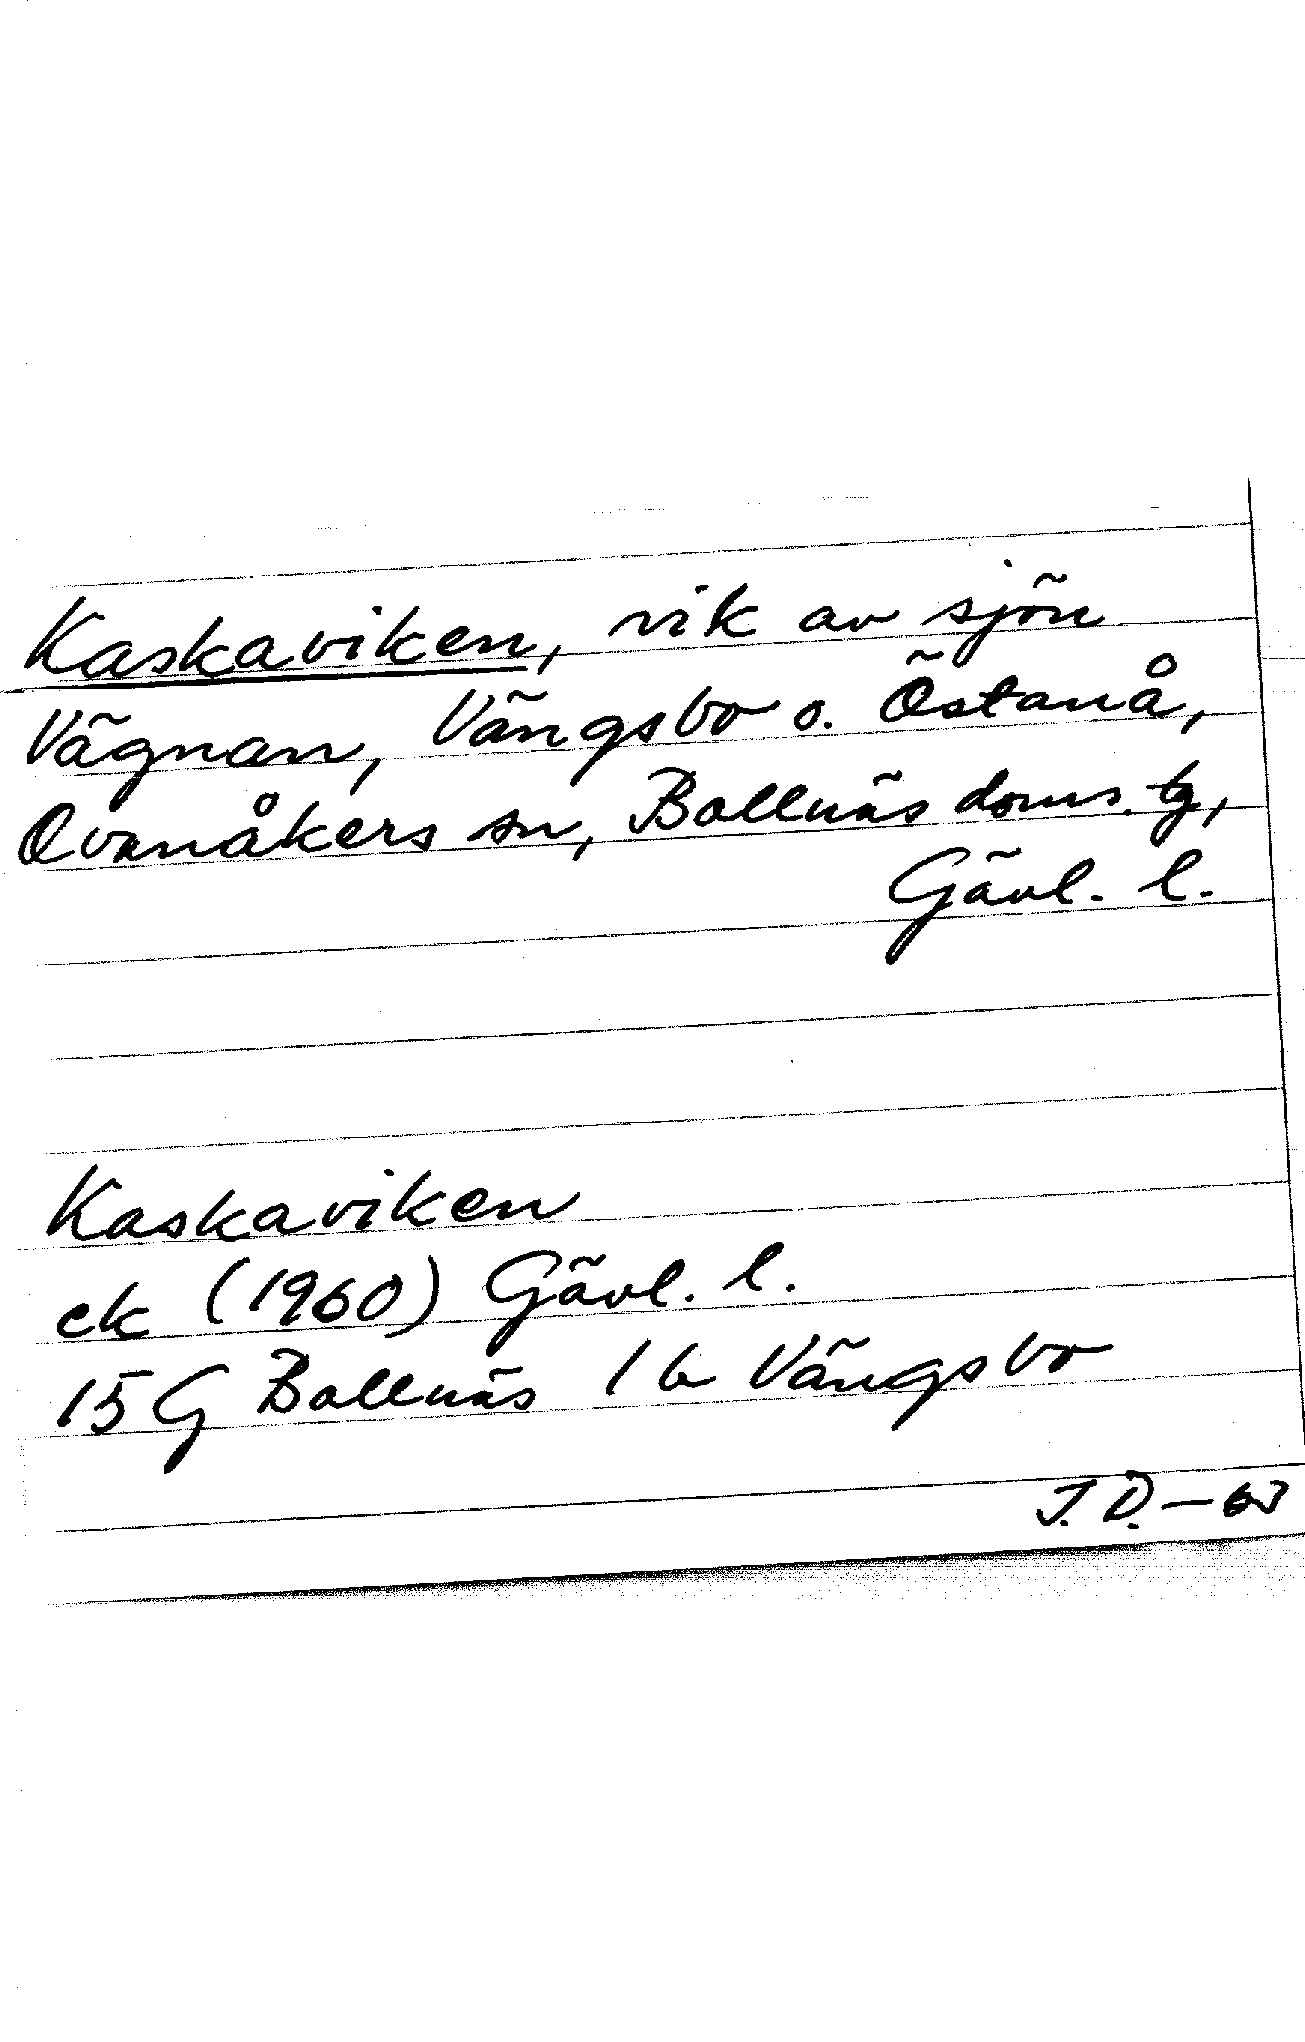 Kaskaviken, vik av sjön
Vägnan, Vängsbo o. Östanå,
Ovanåkers sn, Bollnäs doms. tg,
Gävl. l.
Kaskaviken
ek (1960) Gävl. l.
15 G Bollnäs 1 b Vängsbo
J. D. -63